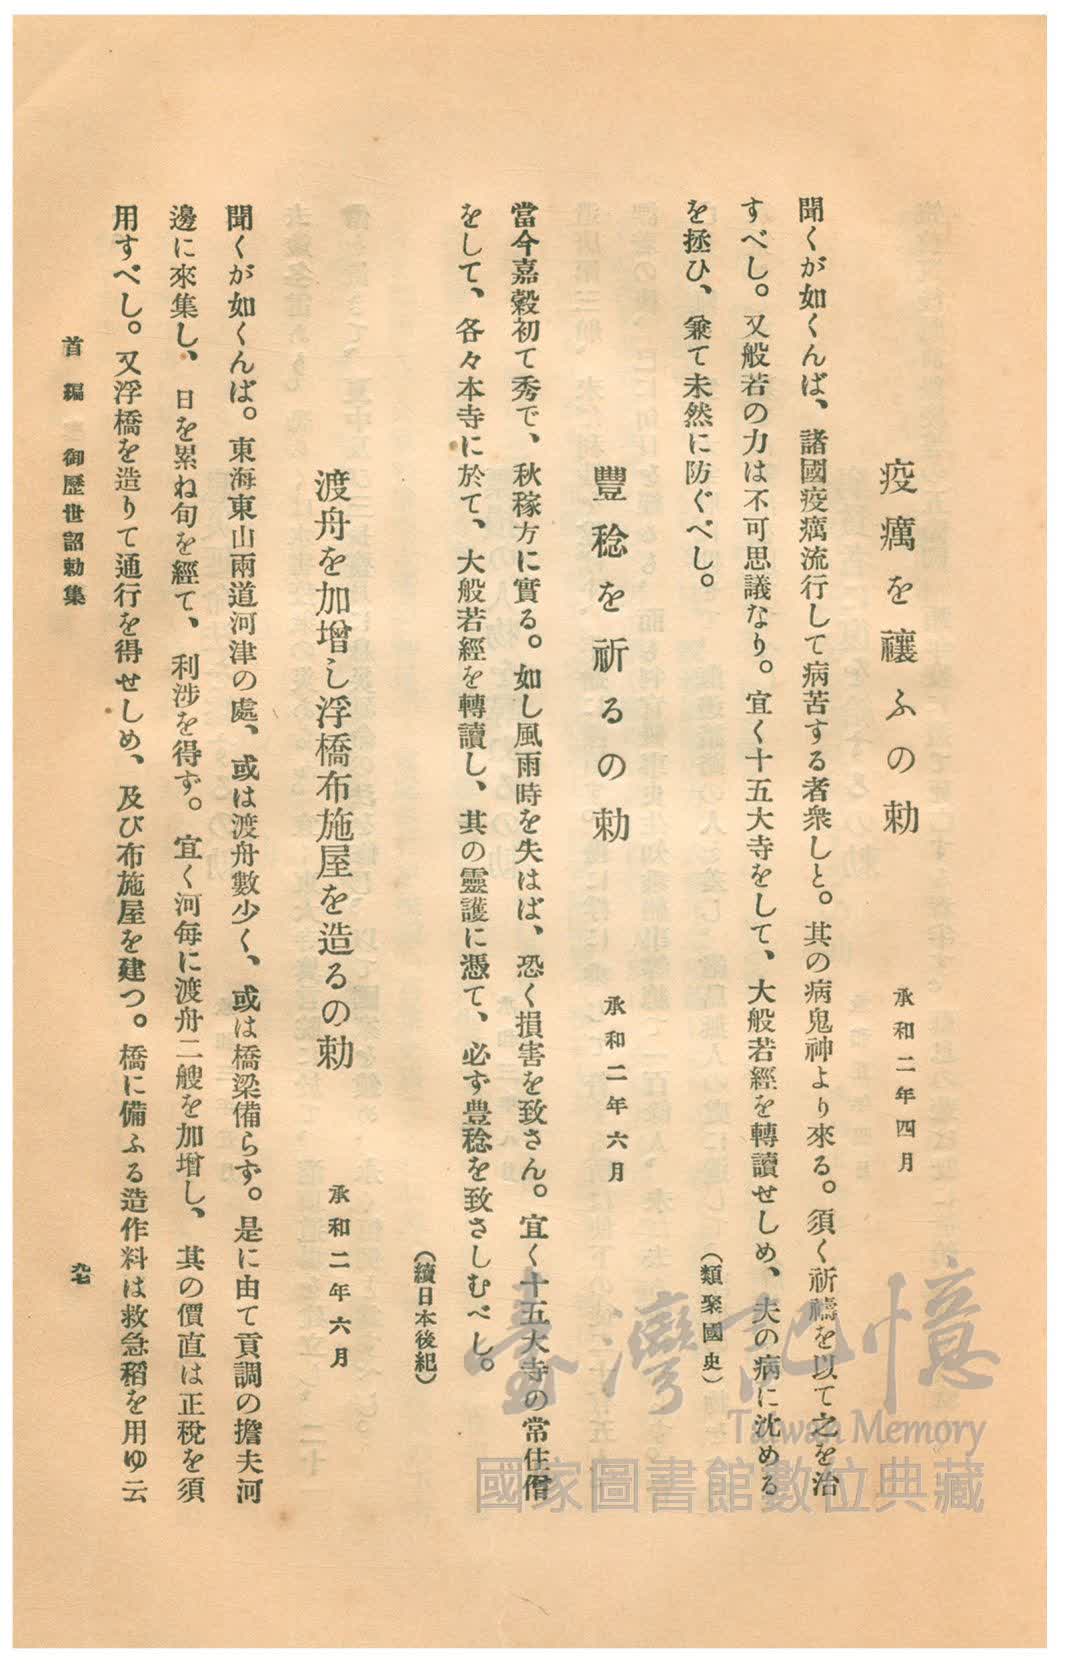 疫癘を禳ふの勅
承和二年四月
聞くが如くんば、諸國疫癘流行して病苦する者衆しと。其の病鬼神より來る。須く祈禱を以て之を治
すべし。又般若の力は不可思議なり。宜く十五大寺をして、大般若經を轉讀せしめ、夫の病に沈める
を拯ひ、兼て未然に防ぐべし。
（類聚國史）
豐稔を祈るの勅
承和二年六月
當今嘉穀初て秀で、秋稼方に實る。如し風雨時を失はば、恐く損害を致さん。宜く十五大寺の常住僧
をして、各々本寺に於て、大般若經を轉讀し、其の靈護に憑て、必ず豊稔を致さしむべし。
（續日本後紀）
渡舟を加增し浮橋布施屋を造るの勅
承和二年六月
聞くが如くんば。東海東山兩道河津の處、或は渡舟數少く、或は橋梁備らず。是に由て貢調の擔夫河
邊に來集し、日を累ね旬を經て、利涉を得ず。宜く河每に渡舟二艘を加增し、其の價直は正稅を須
用すべし。又浮橋を造りて通行を得せしめ、及び布施屋を建つ。橋に備ふる造作料は救急稻を用ゆ云
首編 御歷世詔勅集
九七
臺灣記憶
Taiwan Memory
國家圖書館數位典藏